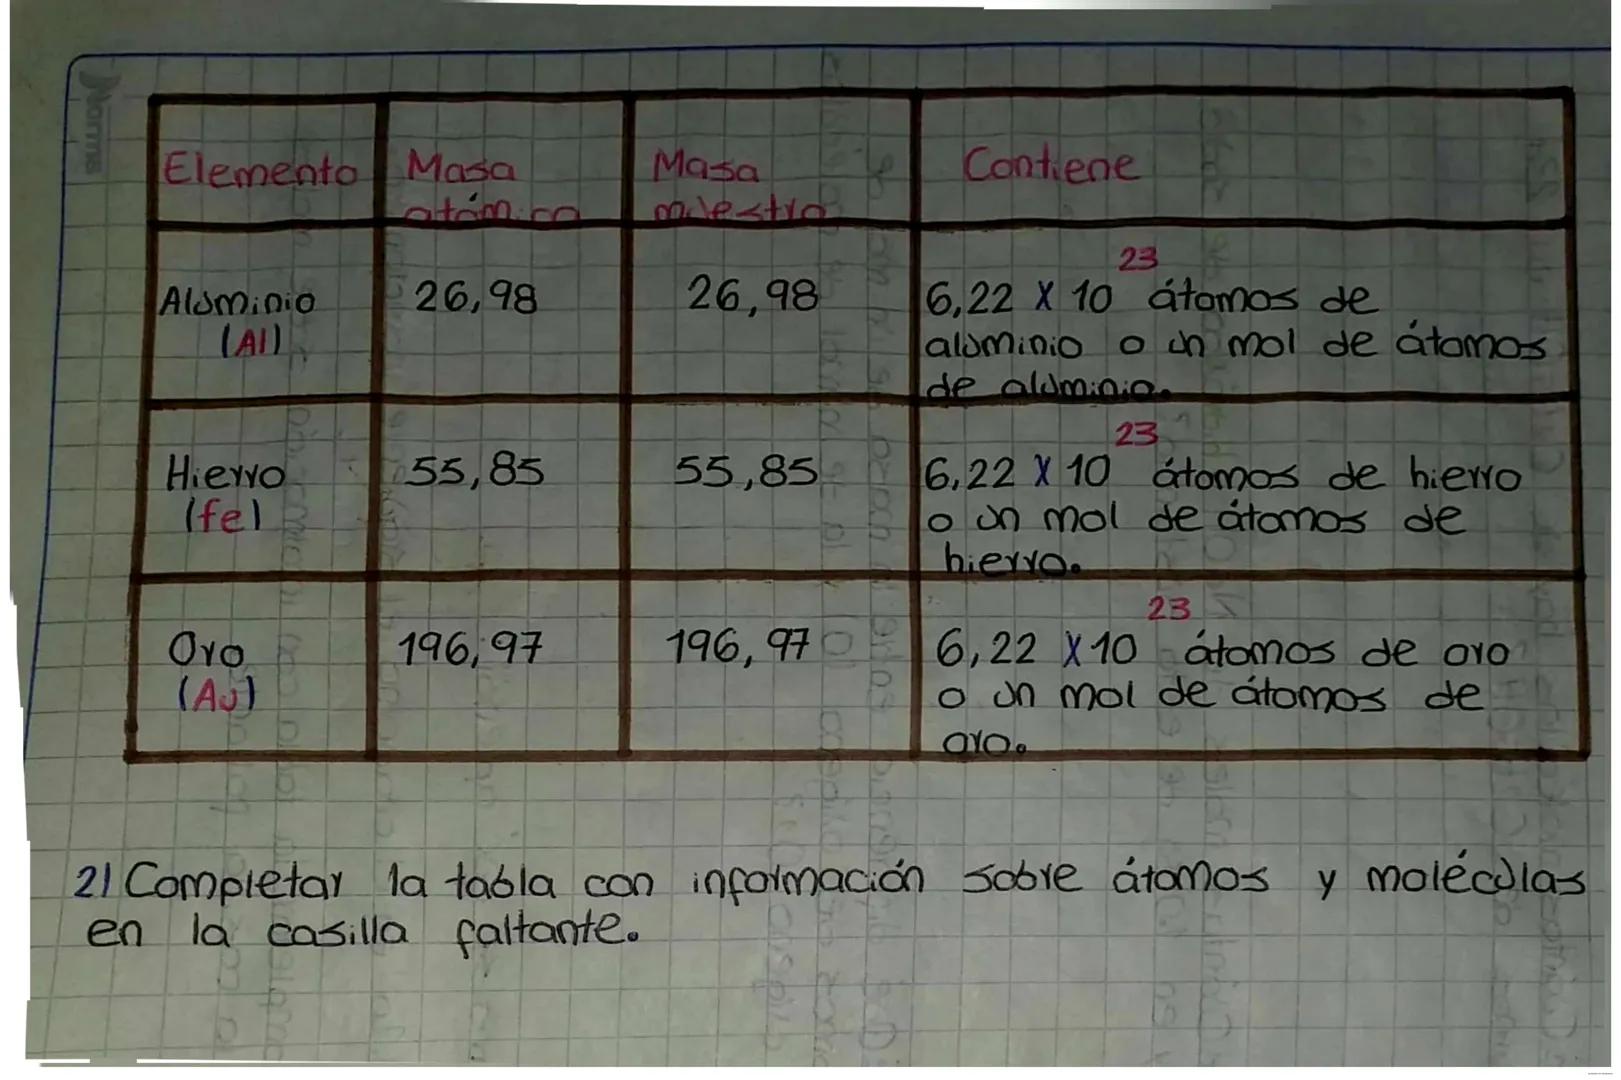 Norma
Elemento
Masa
atómica
Masa
muestra
Contiene
Aluminio
(Al)
26,98
26,98
6,22 X 10²³ átomos de
aluminio o un mol de átomos
de aluminio.
Hierro
(fe)
55,85
55,85
6,22 X 10²³ átomos de hierro
o un mol de átomos de
hierro.
Oro
(Au)
196,97
196,97
6,22 X 10²³ átomos de oro
o un mol de átomos de
oro.
2) Completar la tabla con información sobre átomos y moléculas
en la casilla faltante.